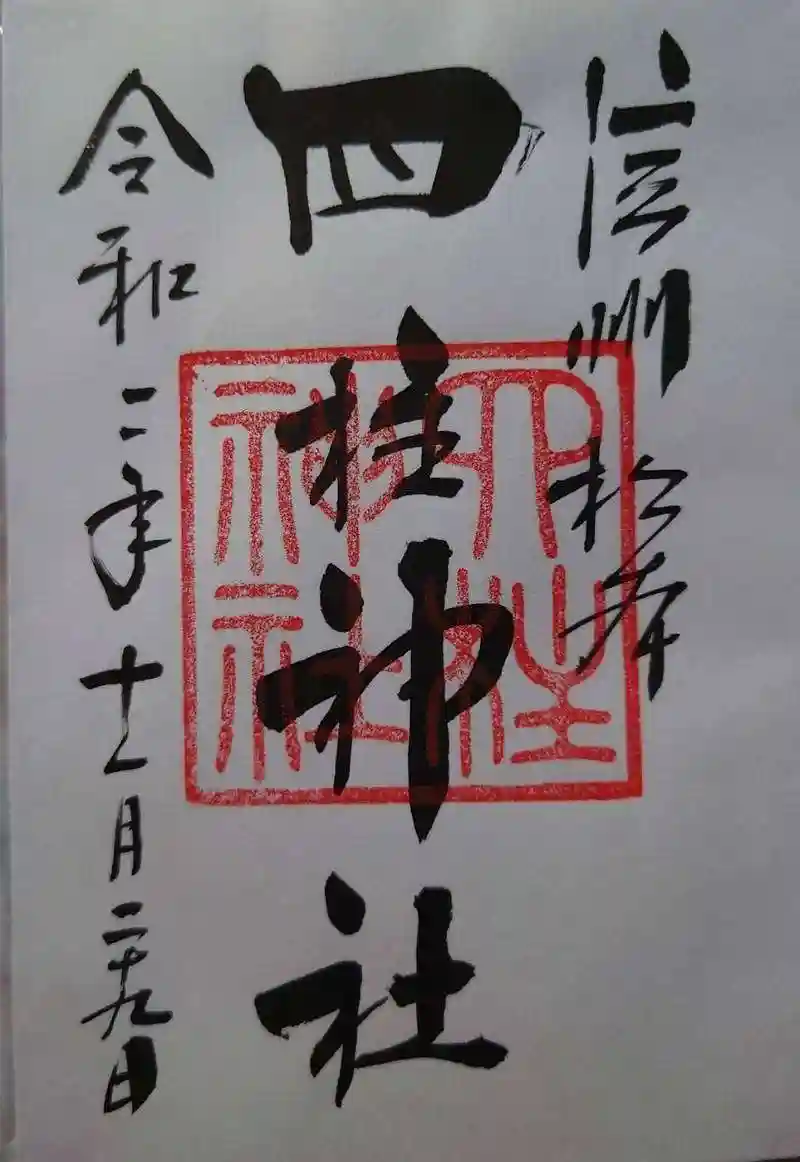 信州 松本
四柱神社
令和二年十一月二十九日
四柱
神社